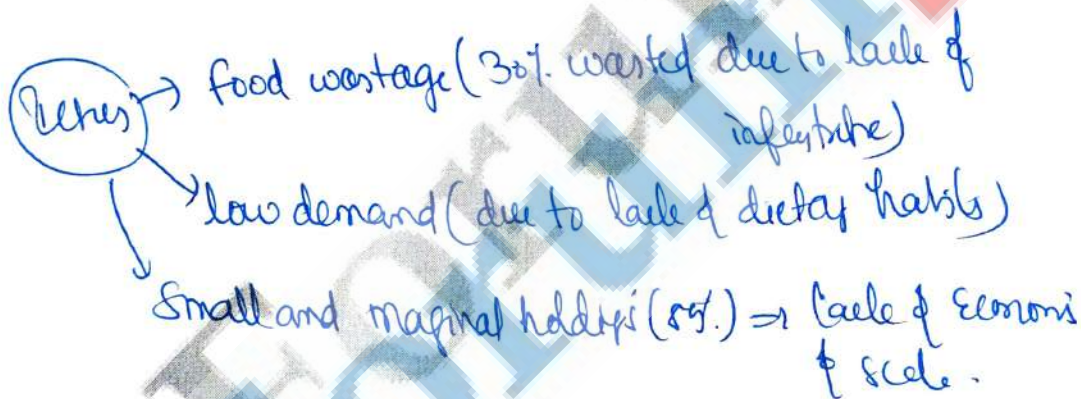 → food wastage (30% wasted due to lack of
→ low demand (due to lack of dietary habits)
Small and marginal holdings (%) ⇒ lack of Economi
of scale.